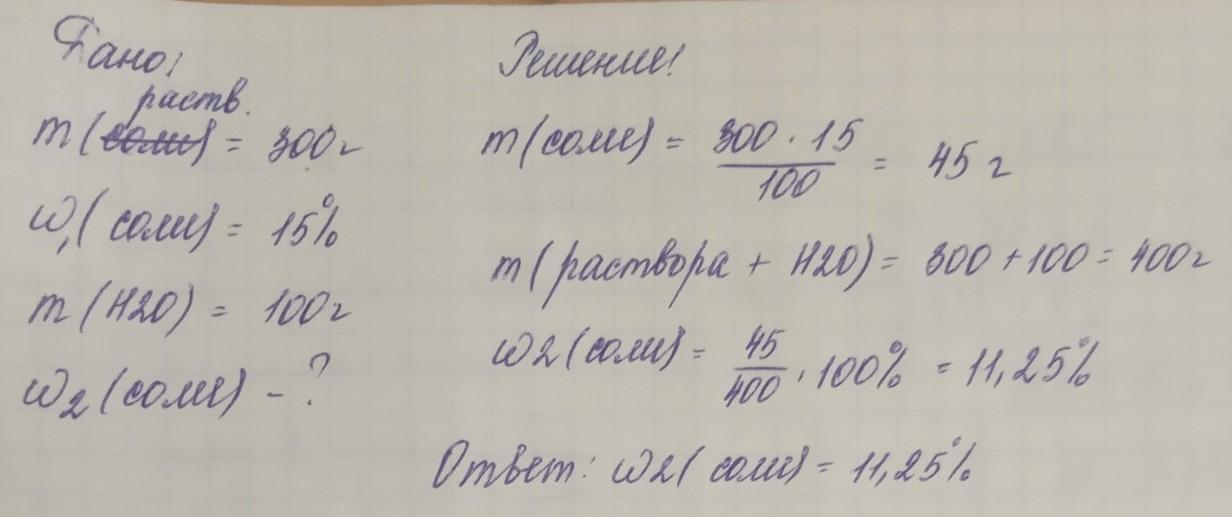 Дано:
раств.
m(соли) = 300г
ω₁(соли) = 15%
m(H2O) = 100г
ω₂(соли) - ?
Решение:
m(соли) = 300 · 15 / 100 = 45 г
m(раствора + H2O) = 300 + 100 = 400г
ω2(соли) = 45 / 400 · 100% = 11,25%
Ответ: ω2(соли) = 11,25%